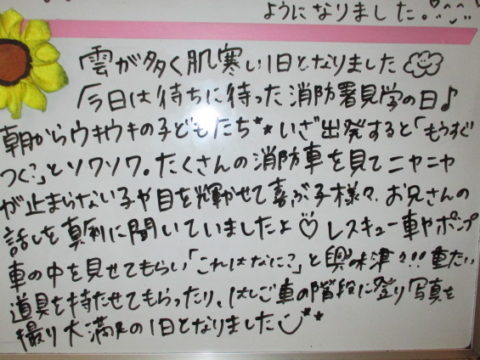 ようになりました。
雲が多く肌寒い1日となりました
今日は待ちに待った消防署見学の日♪
朝からウキウキの子どもたち** いざ出発すると「もうすぐ
つく?」とソワソワ。たくさんの消防車を見てニヤニヤ
が止まらない子や目を輝かせて喜ぶ子様々。お兄さんの
話しを真剣に聞いていましたよ♡ レスキュー車やポンプ
車の中を見せてもらい「これはなに?」と興味津々!!重たい
道具を持たせてもらったり、はしご車の階段に登り写真を
撮り大満足の1日となりました**